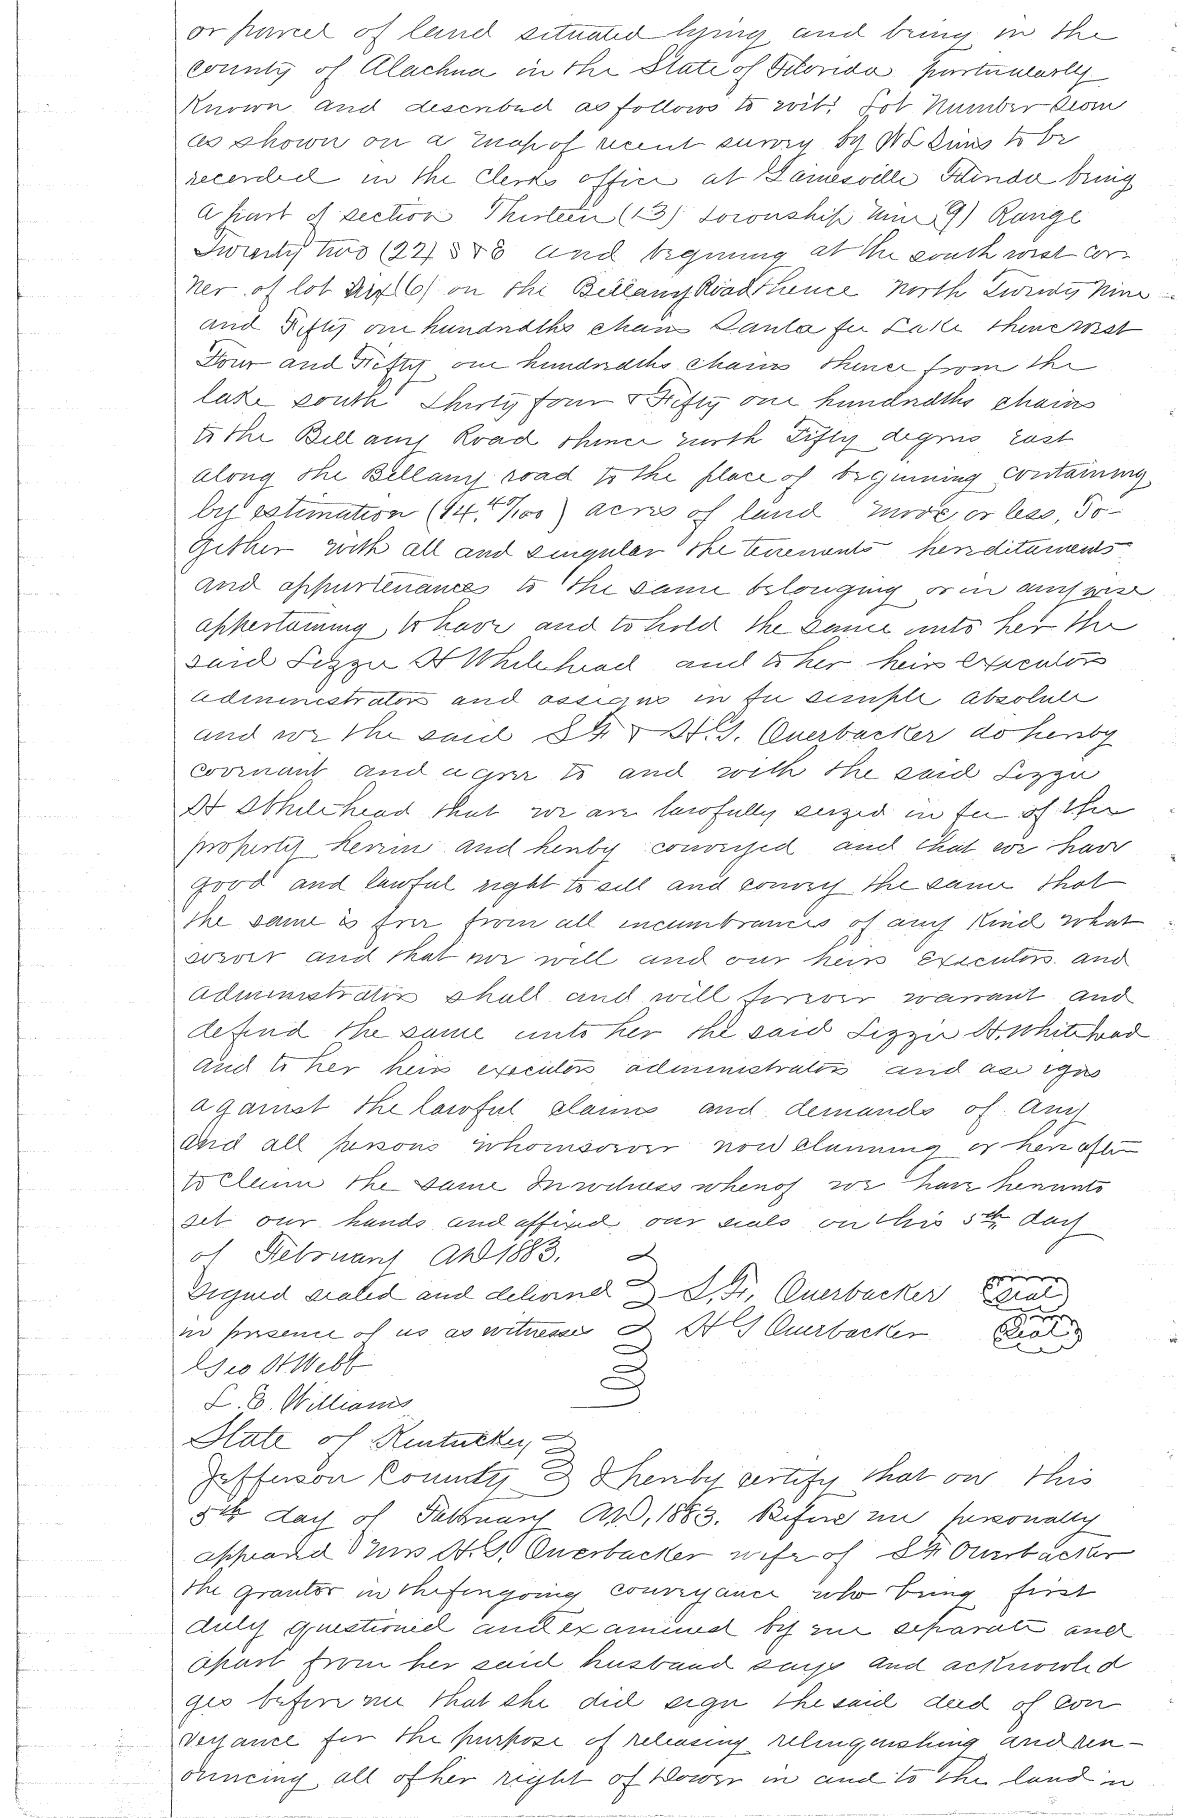 or parcel of land situated lying and being in the
county of Alachua in the State of Florida particularly
Known and described as follows to wit: Lot Number Seven
as shown on a map of recent survey by W L Sims to be
recorded in the Clerks office at Gainesville Florida being
a part of section Thirteen (13) township nine (9) Range
Twenty two (22) S & E and begining at the south west cor-
ner of lot Six (6) on the Bellamy Road thence north Twenty Nine
and Fifty one hundredths chains Santa fee Lake thence west
Four and Fifty one hundredths chains thence from the
lake south Thirty four & Fifty one hundredths chains
to the Bellamy Road thence north Fifty degrees east
along the Bellamy road to the place of beginning containing
by estimation (14. 40/100) acres of land more or less, To-
gether with all and singular the tenements hereditaments
and appurtenances to the same belonging or in anywise
appertaining, to have and to hold the same unto her the
said Lizzie H Whitehead and to her heirs executors
administrators and assigns in fee simple absolute
and we the said S F & H. G. Ouerbacker do hereby
covenant and agree to and with the said Lizzie
H Whitehead that we are lawfully seized in fee of the
property herein and hereby conveyed and that we have
good and lawful right to sell and convey the same that
the same is free from all incumbrances of any Kind what
soever and that we will and our heirs executors and
administrators shall and will forever warrant and
defend the same unto her the said Lizzie H. Whitehead
and to her heirs executors administrators and assigns
against the lawful claims and demands of any
and all persons whomsoever now claiming or hereafter
to claim the same In witness whereof we have hereunto
set our hands and affixed our seals on this 5th day
of February AD 1883.
Signed sealed and delivered S. F. Ouerbacker Seal
in presence of us as witnesses H G Ouerbacker Seal
Geo H Webb
L. E. Williams
State of Kentucky,
Jefferson County I hereby certify that on this
5th day of February AD, 1883. Before me personally
appeared Mrs H. G. Ouerbacker wife of S F Ouerbacker
the grantor in the foregoing conveyance who being first
duly questioned and examined by me separate and
apart from her said husband says and acknowled
ges before me that she did sign the said deed of con
veyance for the purpose of releasing relinquishing and ren-
ouncing all of her right of Dower in and to the land in